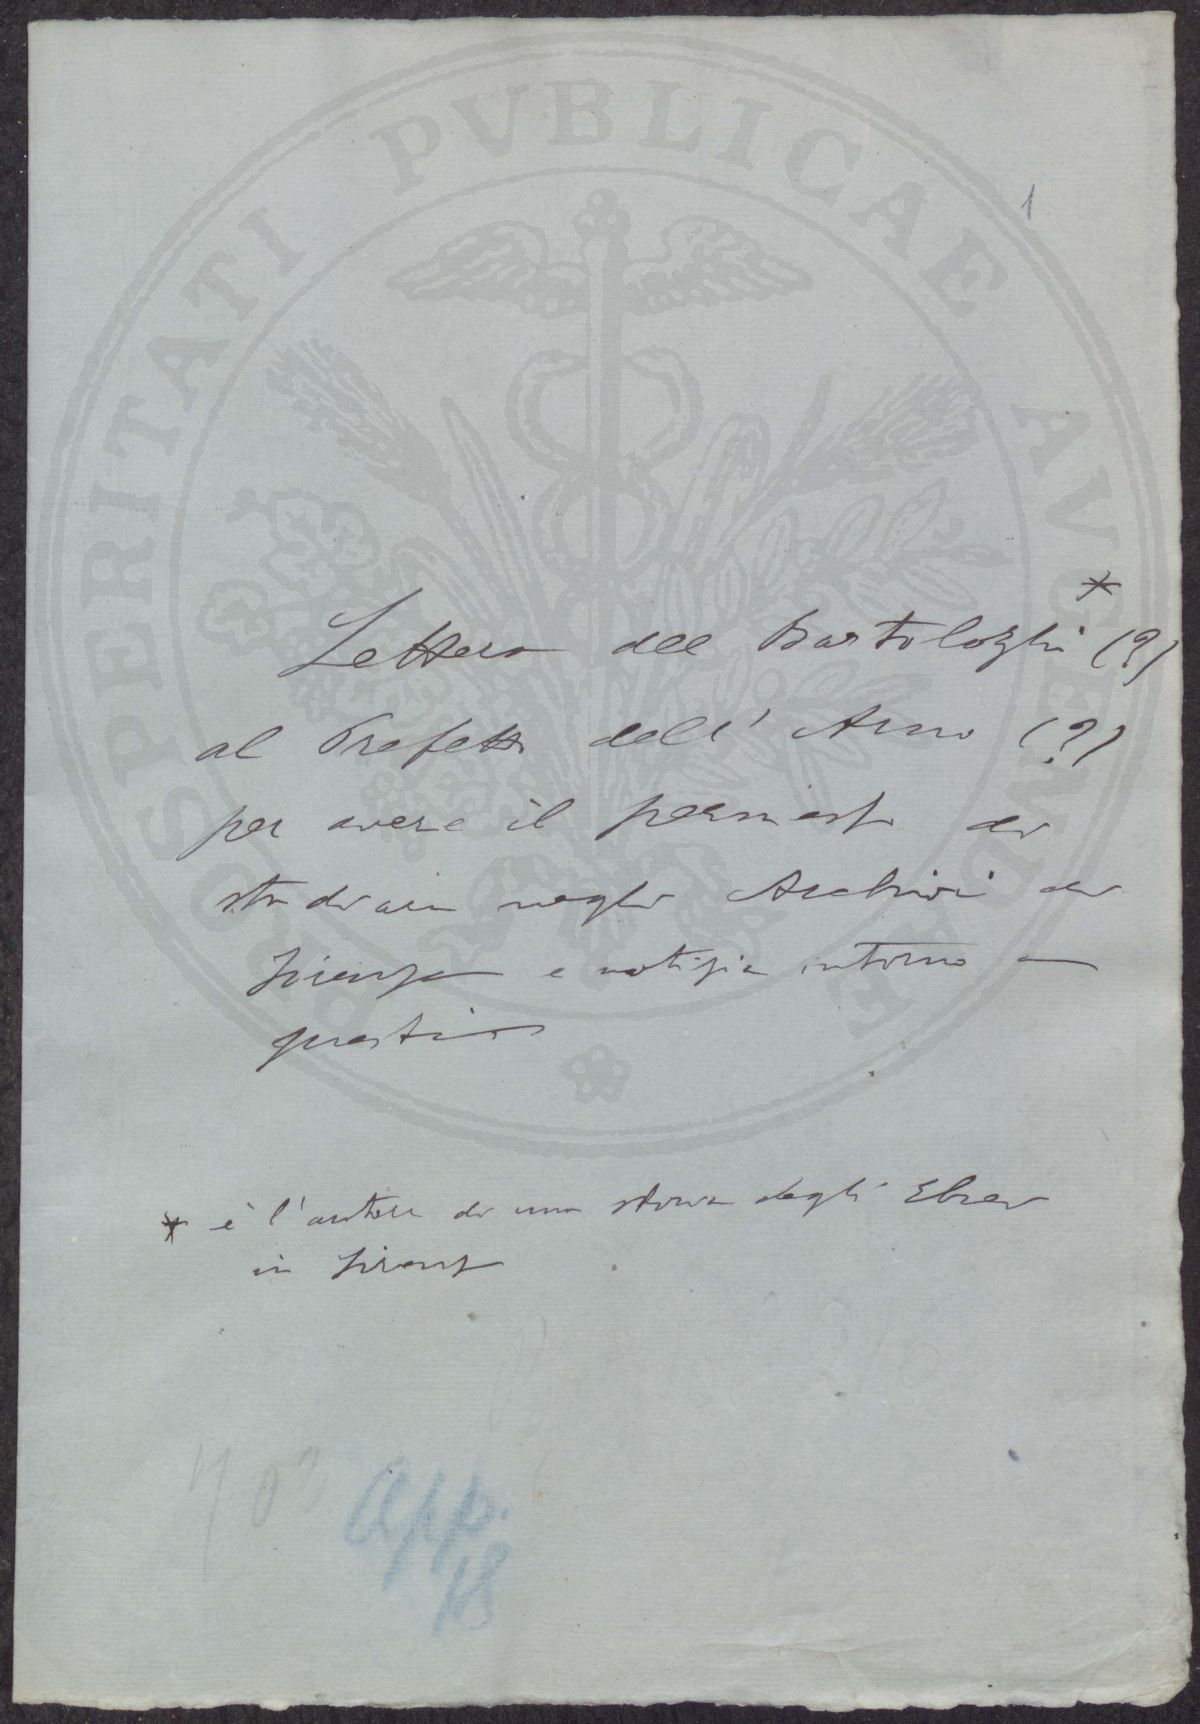 1
Lettera del Bartolozzi * (?)
al Prefetto dell' Arno (?)
per avere il permesso di
studiare negli Archivi di
Firenze e notizie intorno a
questi
* è l'autore di una storia degli Ebrei
in Firenze
703 App.
18
PROSPERITATI PVBLICAE AVGENDAE